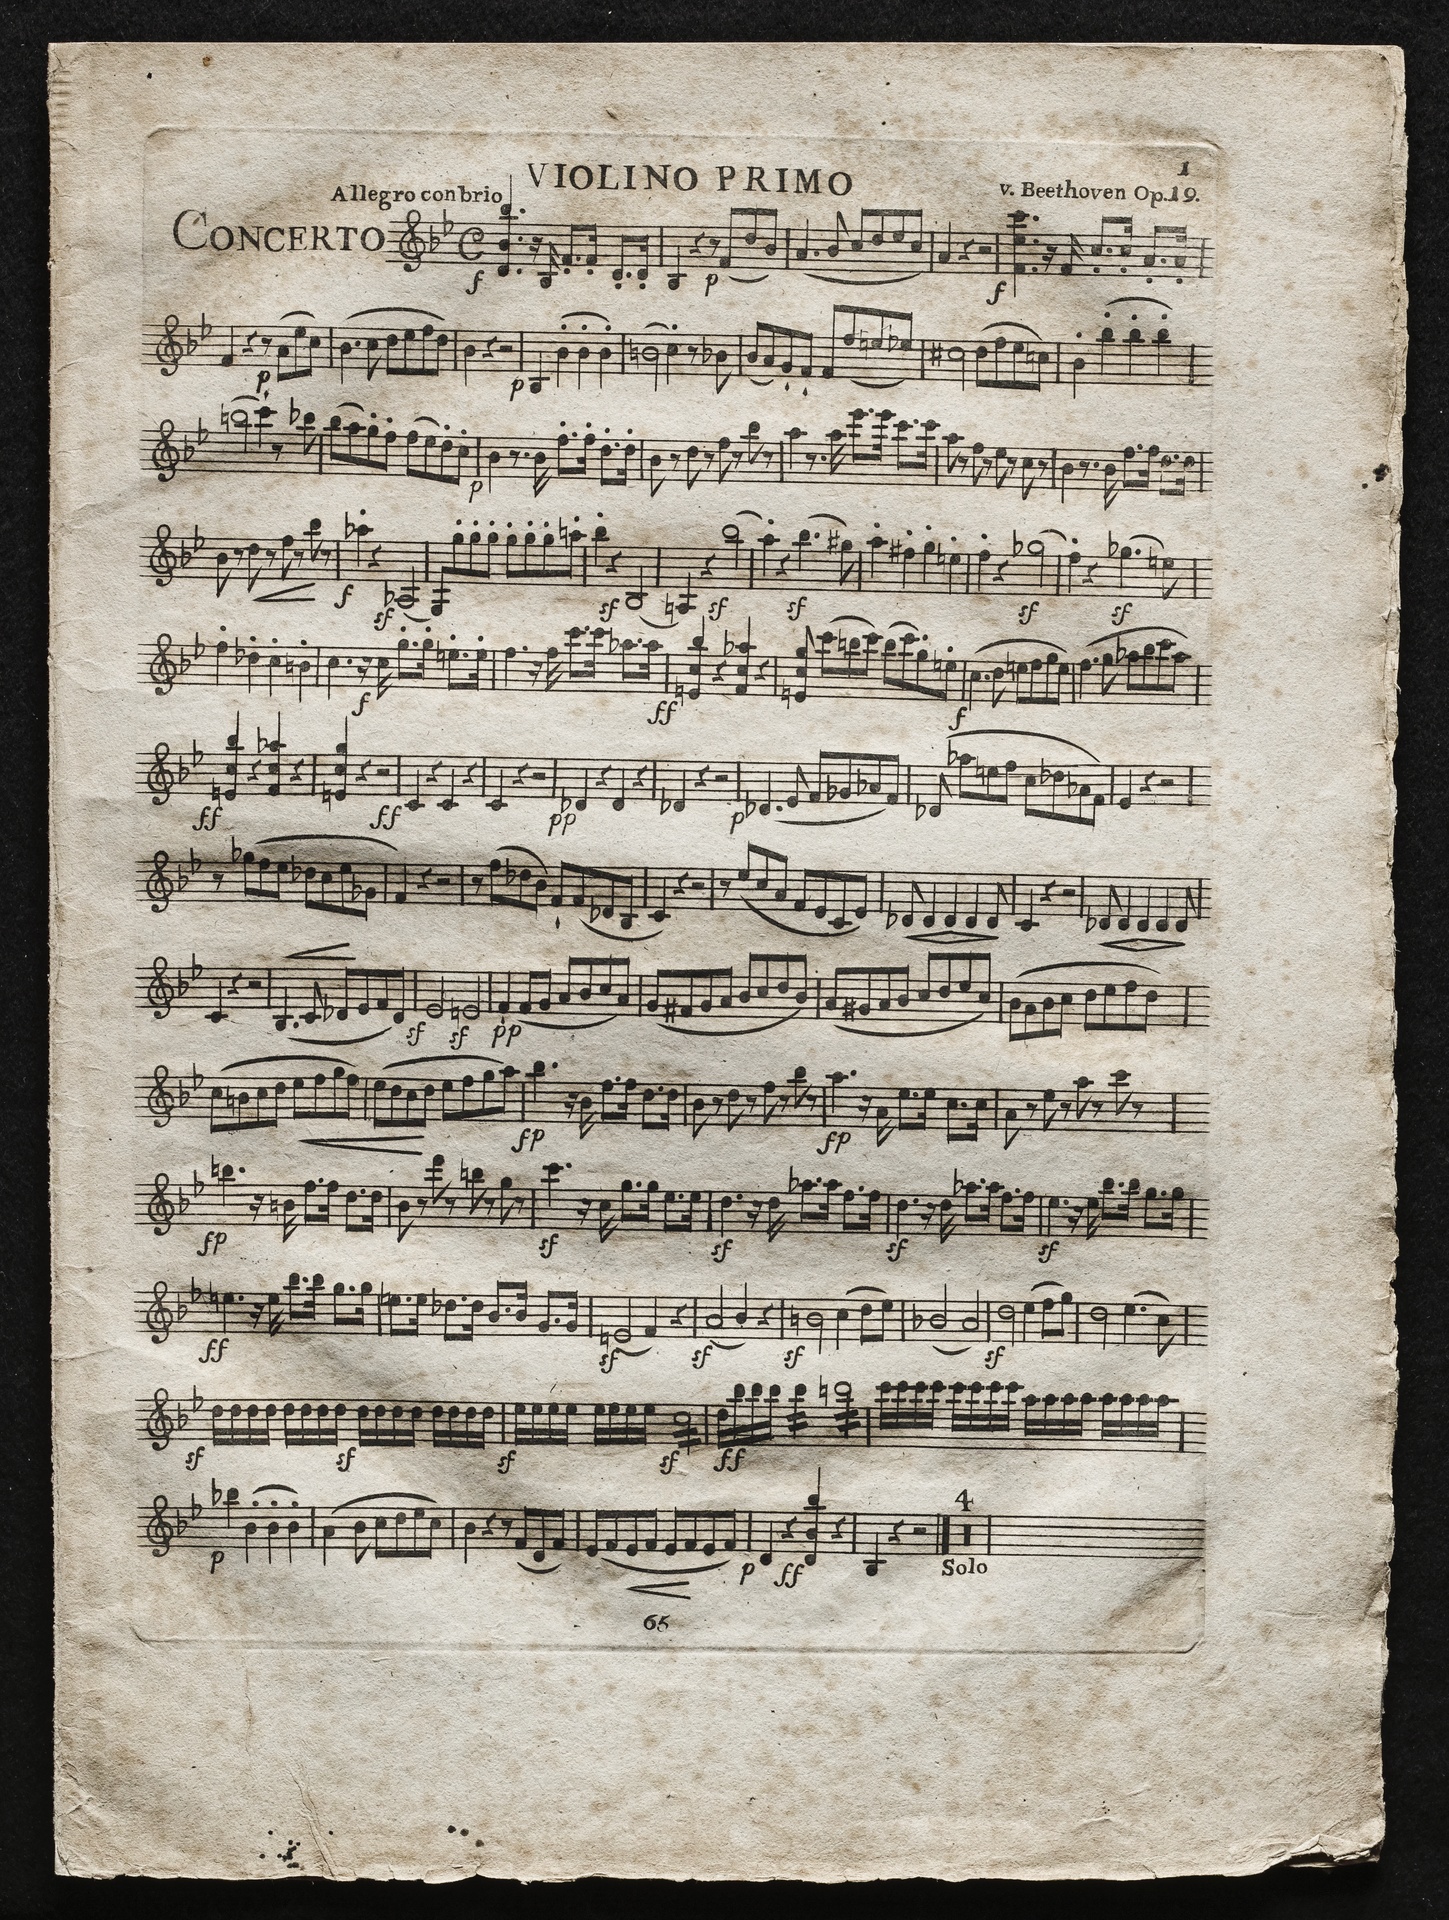 VIOLINO PRIMO
1
Allegro con brio
v. Beethoven Op.19.
CONCERTO
f p f
p p
p
f sf sf sf sf sf sf
f ff f
ff ff pp p
sf sf pp
fp fp
fp sf sf sf sf
ff sf sf sf sf
sf sf sf sf ff
4
p p ff Solo
65